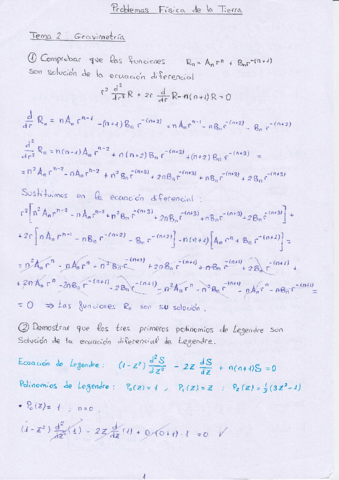 Problemas Física de la Tierra
Tema 2. Gravimetría
① Comprobar que las funciones Rₙ = Aₙ rⁿ + Bₙ r^-(n+1)
son solución de la ecuación diferencial
r² d²/dr² R + 2r d/dr R - n(n+1) R = 0
d/dr Rₙ = n Aₙ r^n-1 - (n+1) Bₙ r^-(n+2) = n Aₙ r^n-1 - n Bₙ r^-(n+2) - Bₙ r^-(n+2)
d²/dr² Rₙ = n(n-1) Aₙ r^n-2 + n(n+2) Bₙ r^-(n+3) + (n+2) Bₙ r^-(n+3) =
= n² Aₙ r^n-2 - n Aₙ r^n-2 + n² Bₙ r^-(n+3) + 2n Bₙ r^-(n+3) + n Bₙ r^-(n+3) + 2 Bₙ r^-(n+3)
Sustituimos en la ecuación diferencial:
r² [n² Aₙ r^n-2 - n Aₙ r^n-2 + n² Bₙ r^-(n+3) + 2n Bₙ r^-(n+3) + n Bₙ r^-(n+3) + 2 Bₙ r^-(n+3)] +
+ 2r [n Aₙ r^n-1 - n Bₙ r^-(n+2) - Bₙ r^-(n+2)] - n(n+1) [Aₙ rⁿ + Bₙ r^-(n+1)] =
= 0 ⇒ Las funciones Rₙ son su solución.
② Demostrar que los tres primeros polinomios de Legendre son
solución de la ecuación diferencial de Legendre.
Ecuación de Legendre: (1-z²) d²S/dz² - 2z dS/dz + n(n+1) S = 0
Polinomios de Legendre: P₀(z) = 1, P₁(z) = z; P₂(z) = ½ (3z² - 1)
• P₀(z) = 1; n = 0
(1-z²) d²/dz² (1) - 2z d/dz (1) + 0·(0+1)·1 = 0 ✓
1